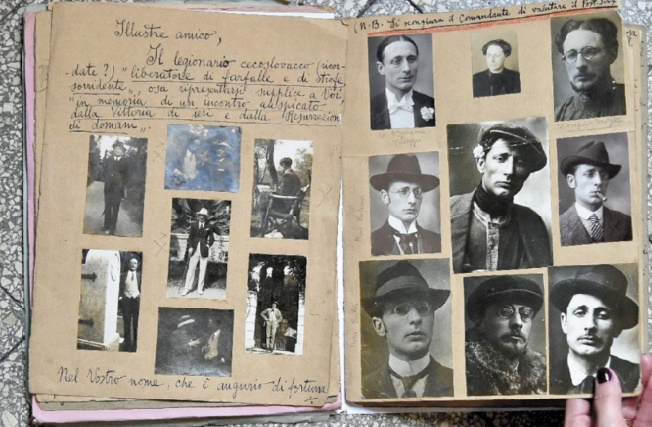 Illustre amico,
Il legionario cecoslovacco (ricor-
date?) "liberatore di farfalle e di stiofe,
sorridente", osa ripresentarsi supplice a Voi,
"in memoria di un incontro auspicato
dalla Vittoria di ieri e dalla Resurrezione
di domani".
Nel Vostro nome, che è augurio di fortuna
(N.B. Si scongiura il Comandante di valutare il Post-